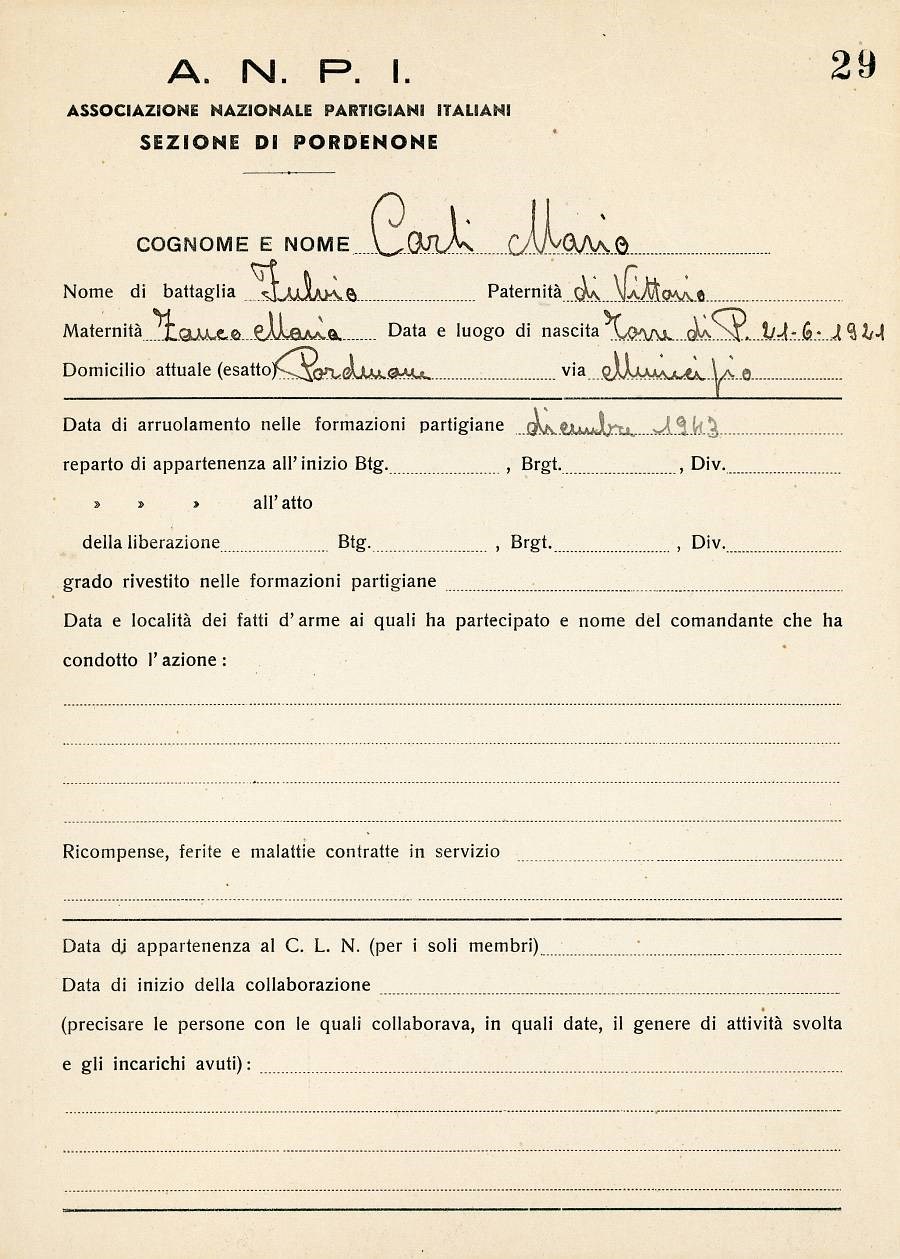 29
A. N. P. I.
ASSOCIAZIONE NAZIONALE PARTIGIANI ITALIANI
SEZIONE DI PORDENONE
COGNOME E NOME Carli Mario
Nome di battaglia Fulvio Paternità di Vittorio
Maternità Zauco Maria Data e luogo di nascita Torre di P. 21-6-1921
Domicilio attuale (esatto) Pordenone via Municipio
Data di arruolamento nelle formazioni partigiane dicembre 1943
reparto di appartenenza all'inizio Btg. , Brgt. , Div.
» » » all'atto
della liberazione Btg. , Brgt. , Div.
grado rivestito nelle formazioni partigiane
Data e località dei fatti d'arme ai quali ha partecipato e nome del comandante che ha
condotto l'azione :
Ricompense, ferite e malattie contratte in servizio
Data di appartenenza al C. L. N. (per i soli membri)
Data di inizio della collaborazione
(precisare le persone con le quali collaborava, in quali date, il genere di attività svolta
e gli incarichi avuti) :